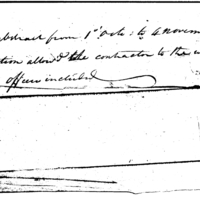 abstract from 1st Octo: to 4 Novem
tion allowed the contractor to the
officers included